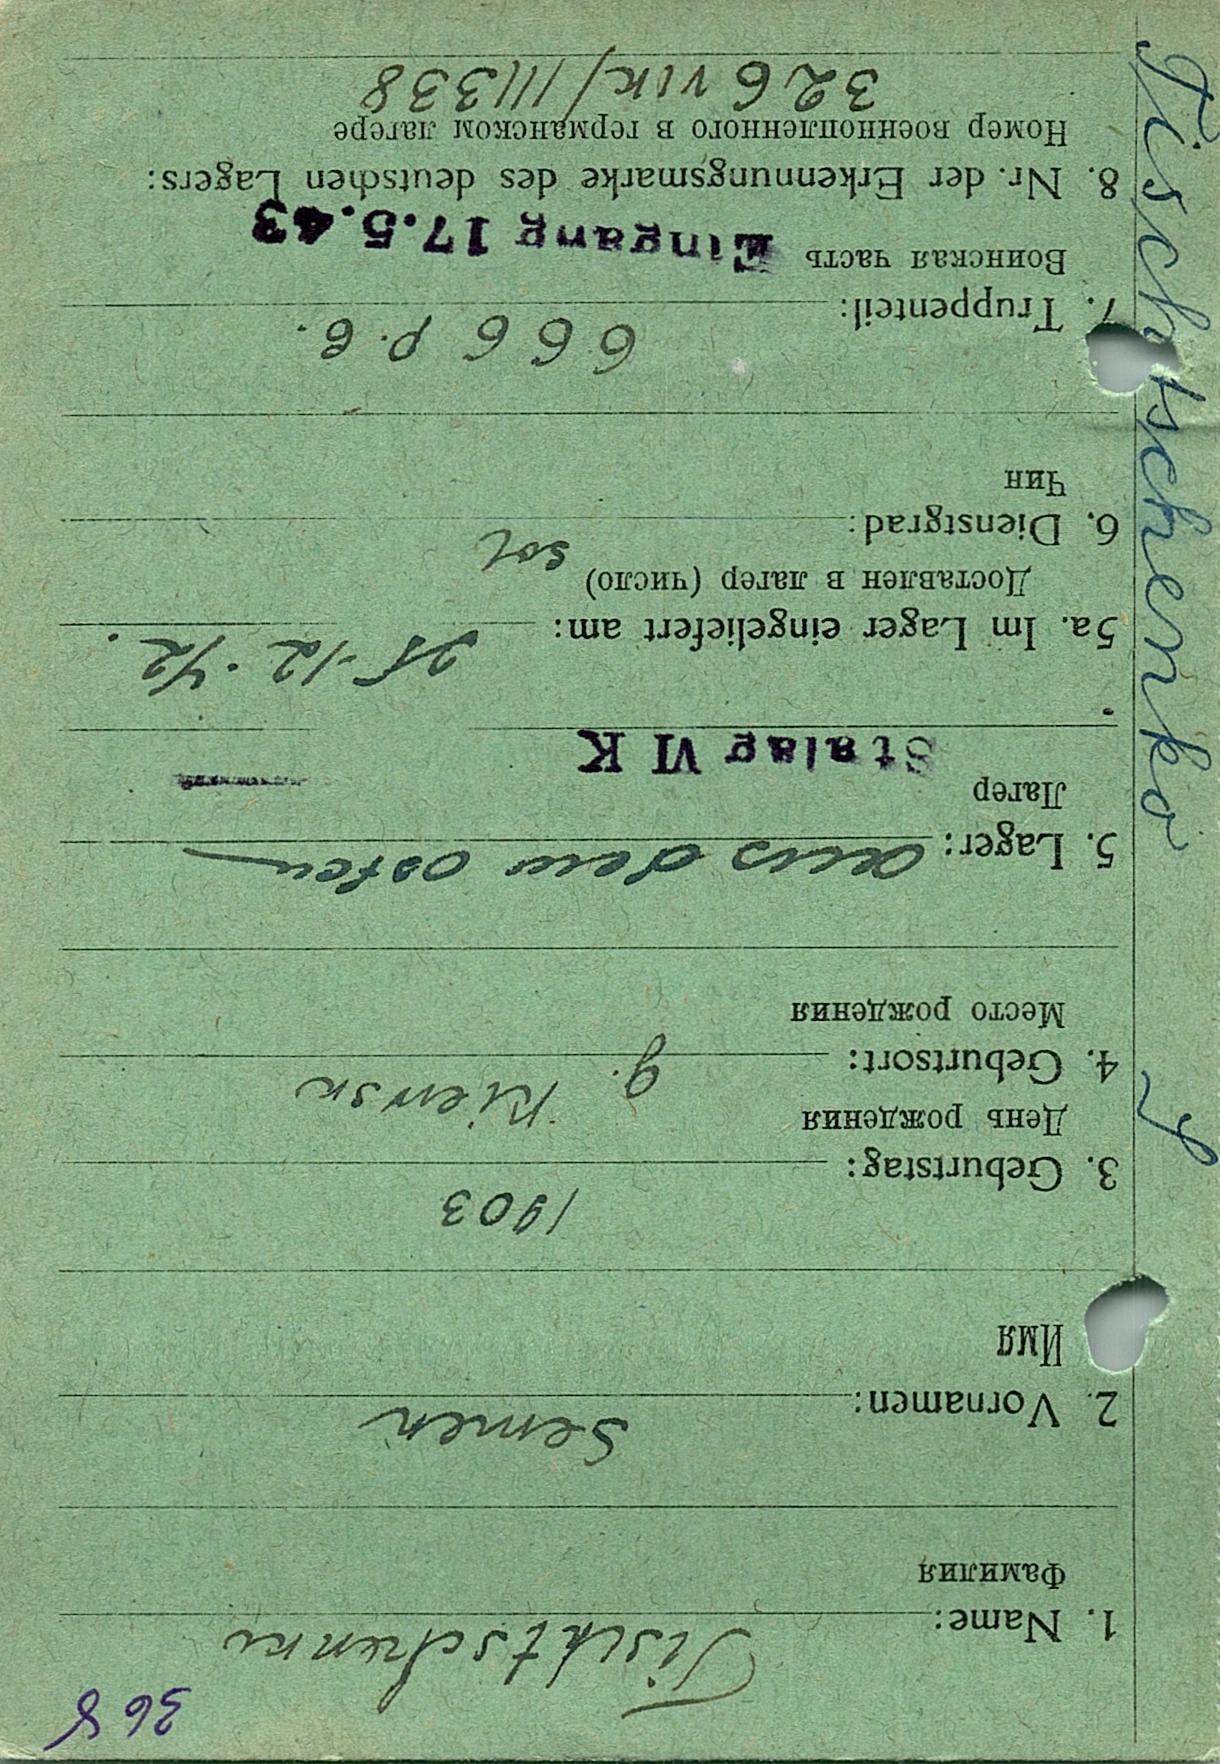 368
1. Name: Tischtschenko
Фамилия
2. Vornamen: Semen
Имя
3. Geburtstag: 1903
День рождения
4. Geburtsort: g. Kiewsk
Место рождения
5. Lager: aus dem osten
Лагер
Stalag VI K
5a. Im Lager eingeliefert am: 25-12.42.
Доставлен в лагер (число)
6. Dienstgrad: sol
Чин
7. Truppenteil: 666 p. b.
Воинская часть
Eingang 17.5.43
8. Nr. der Erkennungsmarke des deutschen Lagers:
Номер военнопленного в германском лагере
326 VIK/111338
Tischtschenko